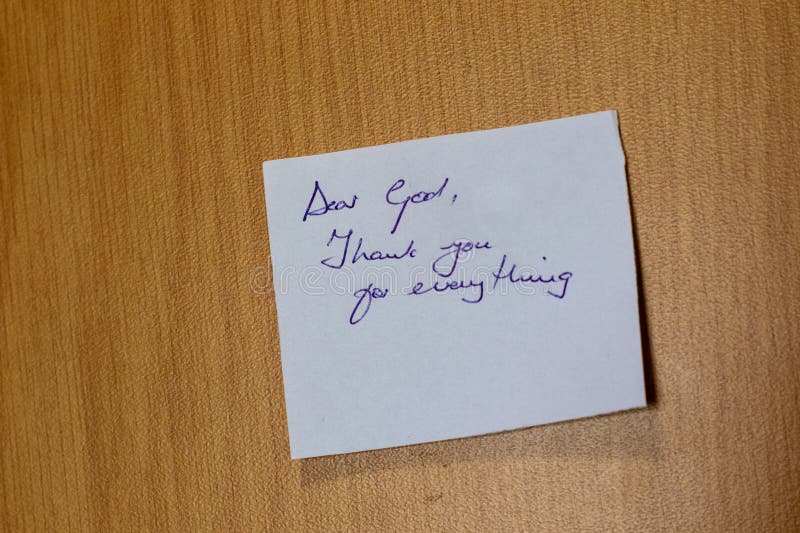 Dear God,
Thank you
for everything
dreamstime